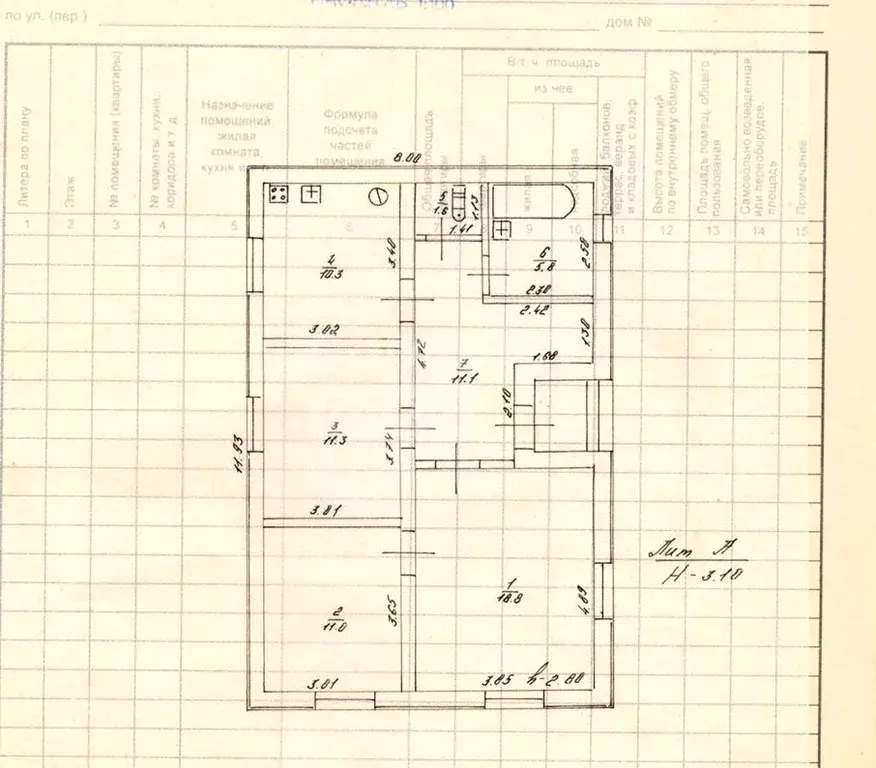 по ул. (пер.)
дом №
Литера по плану
Этаж
№ помещения (квартиры)
№ комнаты, кухни, коридора и т д
Назначение
помещений
жилая
комната,
кухня и
Формула
подсчета
частей
помещения
Общая площадь
В т. ч. площадь
из нее
жилая
лоджий, балконов
террас, веранд
и кладовых с коэф
Высота помещений
по внутреннему обмеру
Площадь помещ. общего
пользования
Самовольно возведенная
или переоборудов.
площадь
Примечание
1 2 3 4 5 6 7 8 9 10 11 12 13 14 15
8.00
5
1.6
1.13
1.41
4
10.3
3.40
6
5.8
2.50
2.30
2.42
3.02
1.30
4.72
7
11.1
1.68
2.10
3
11.3
3.74
11.93
3.81
Лит А
Н-3.10
1
18.8
4.89
2
11.0
3.65
3.01
3.85 h-2.80